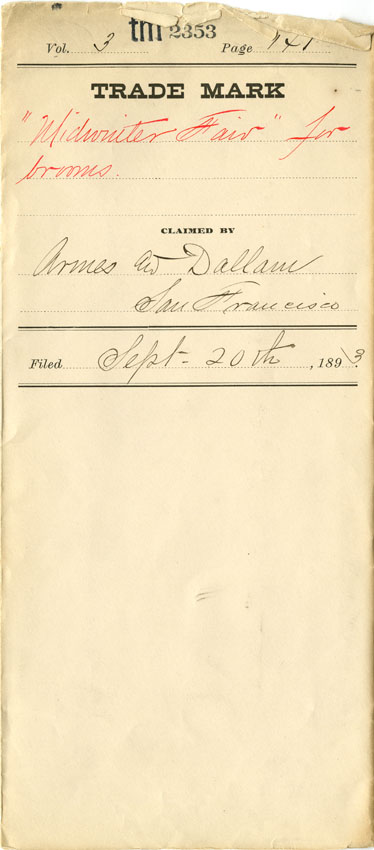 tm 2353
Vol. 3 Page 141
TRADE MARK
"Midwinter Fair" for
brooms.
CLAIMED BY
Armes and Dallam
San Francisco
Filed Sept- 20th, 1893.